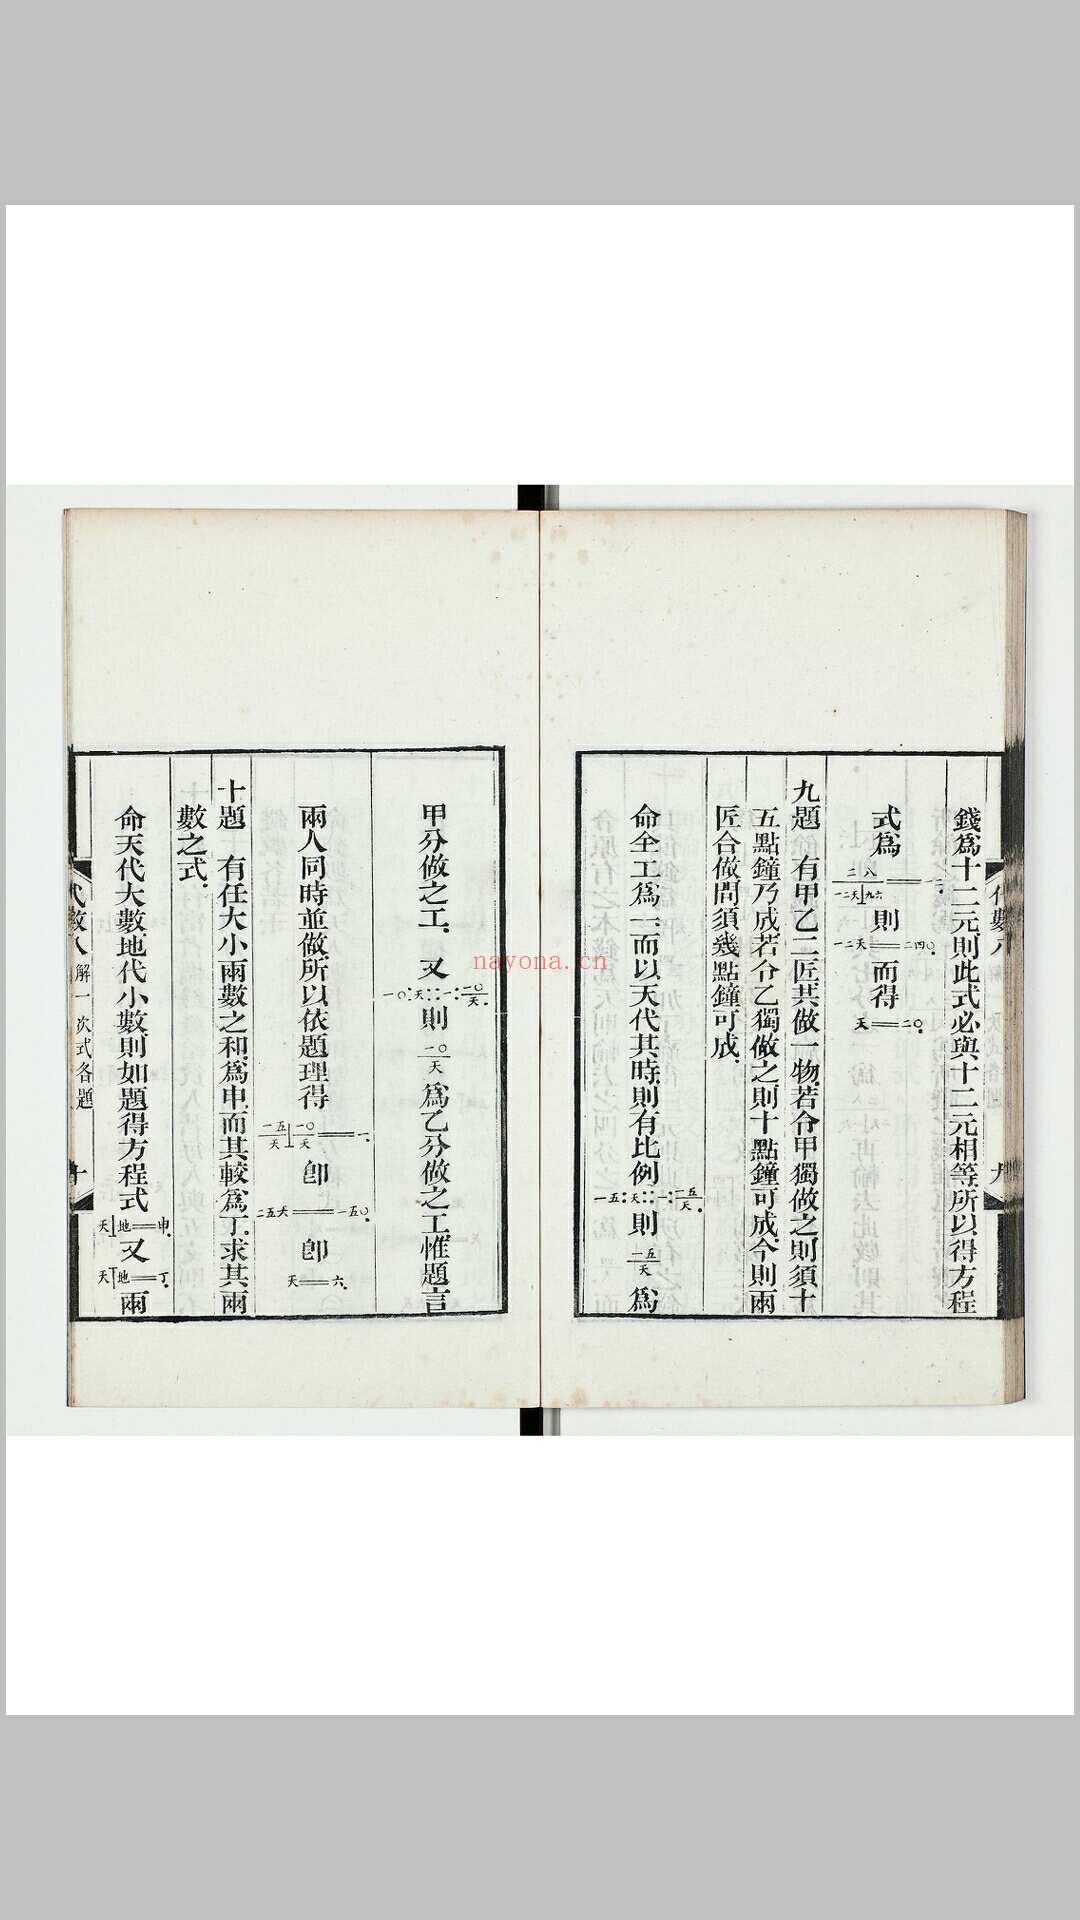 錢爲十二元則此式必與十二元相等所以得方程
式爲
則
而得
九題 有甲乙二匠共做一物若令甲獨做之則須十
五點鐘乃成若令乙獨做之則十點鐘可成今則兩
匠合做問須幾點鐘可成
命全工爲一而以天代其時則有比例 一五：天：：一：一五/天 則 一五/天 爲
甲分做之工又 一〇：天：：一：一〇/天 則 一〇/天 爲乙分做之工惟題言
兩人同時並做所以依題理得 一五/天⊥一〇/天＝一 卽 二五天＝一五〇 卽 天＝六
十題 有任大小兩數之和爲申而其較爲丁求其兩
數之式
命天代大數地代小數則如題得方程式 天⊥地＝申 又 天丅地＝丁 兩
代數八 解一次式各題 十
代數八 九
nayona.cn